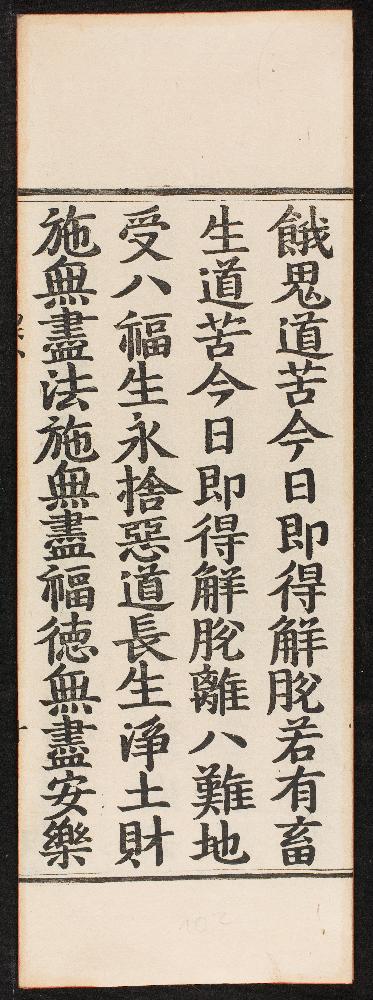 餓鬼道苦今日即得解脫若有畜
生道苦今日即得解脫離八難地
受八福生永捨惡道長生淨土財
施無盡法施無盡福德無盡安樂
102